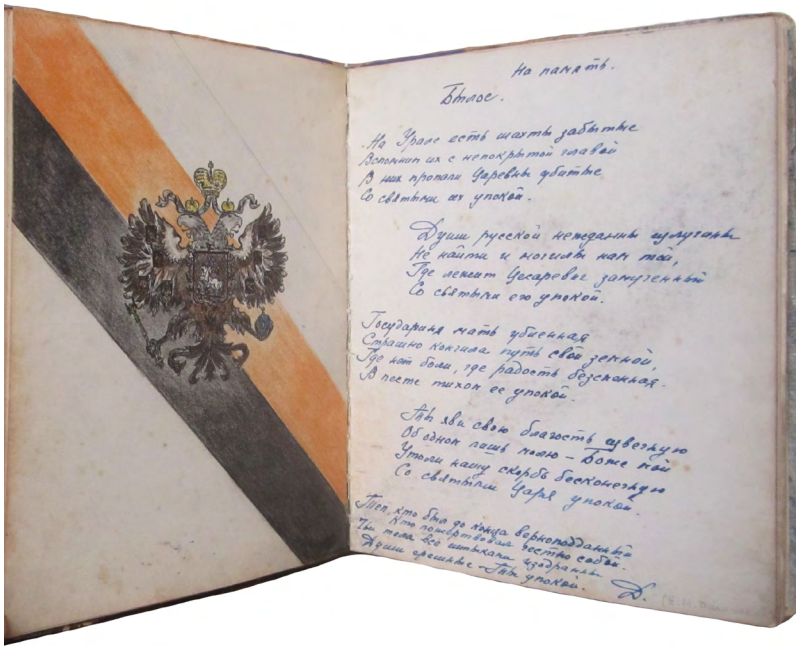 На память.
Былое.
На Урале есть шахты забытые
Вспомним их с непокрытой главой
В них пропали Царевны убитые
Со святыми их упокой.
Души русской нежданны излучины
Не найти и могилы нам той,
Где лежит Цесаревич замученный
Со святыми его упокой.
Государыня мать убиенная
Страшно кончила путь свой земной,
Где нет боли, где радость безсменная.
В месте тихом ее упокой.
Ты яви свою благость извечную
Об одном лишь молю - Боже мой
Утоли нашу скорбь бесконечную
Со святыми Царя упокой.
Тем, кто был до конца верноподданный
Кто пожертвовал честно собой.
Чьи тела все штыками изодраны
Души грешные - Ты упокой.
Д.